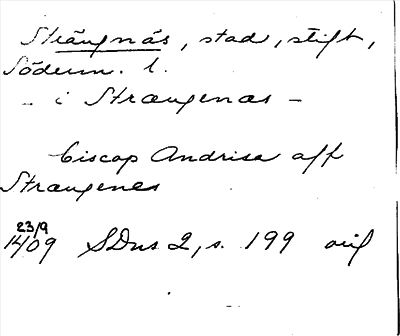 Strängnäs, stad, stift,
Söderm. l.
– i Strængenæs –
Biscop Andrisa aff
Strængenes
23/9
1409 SDns 2, s. 199 orig